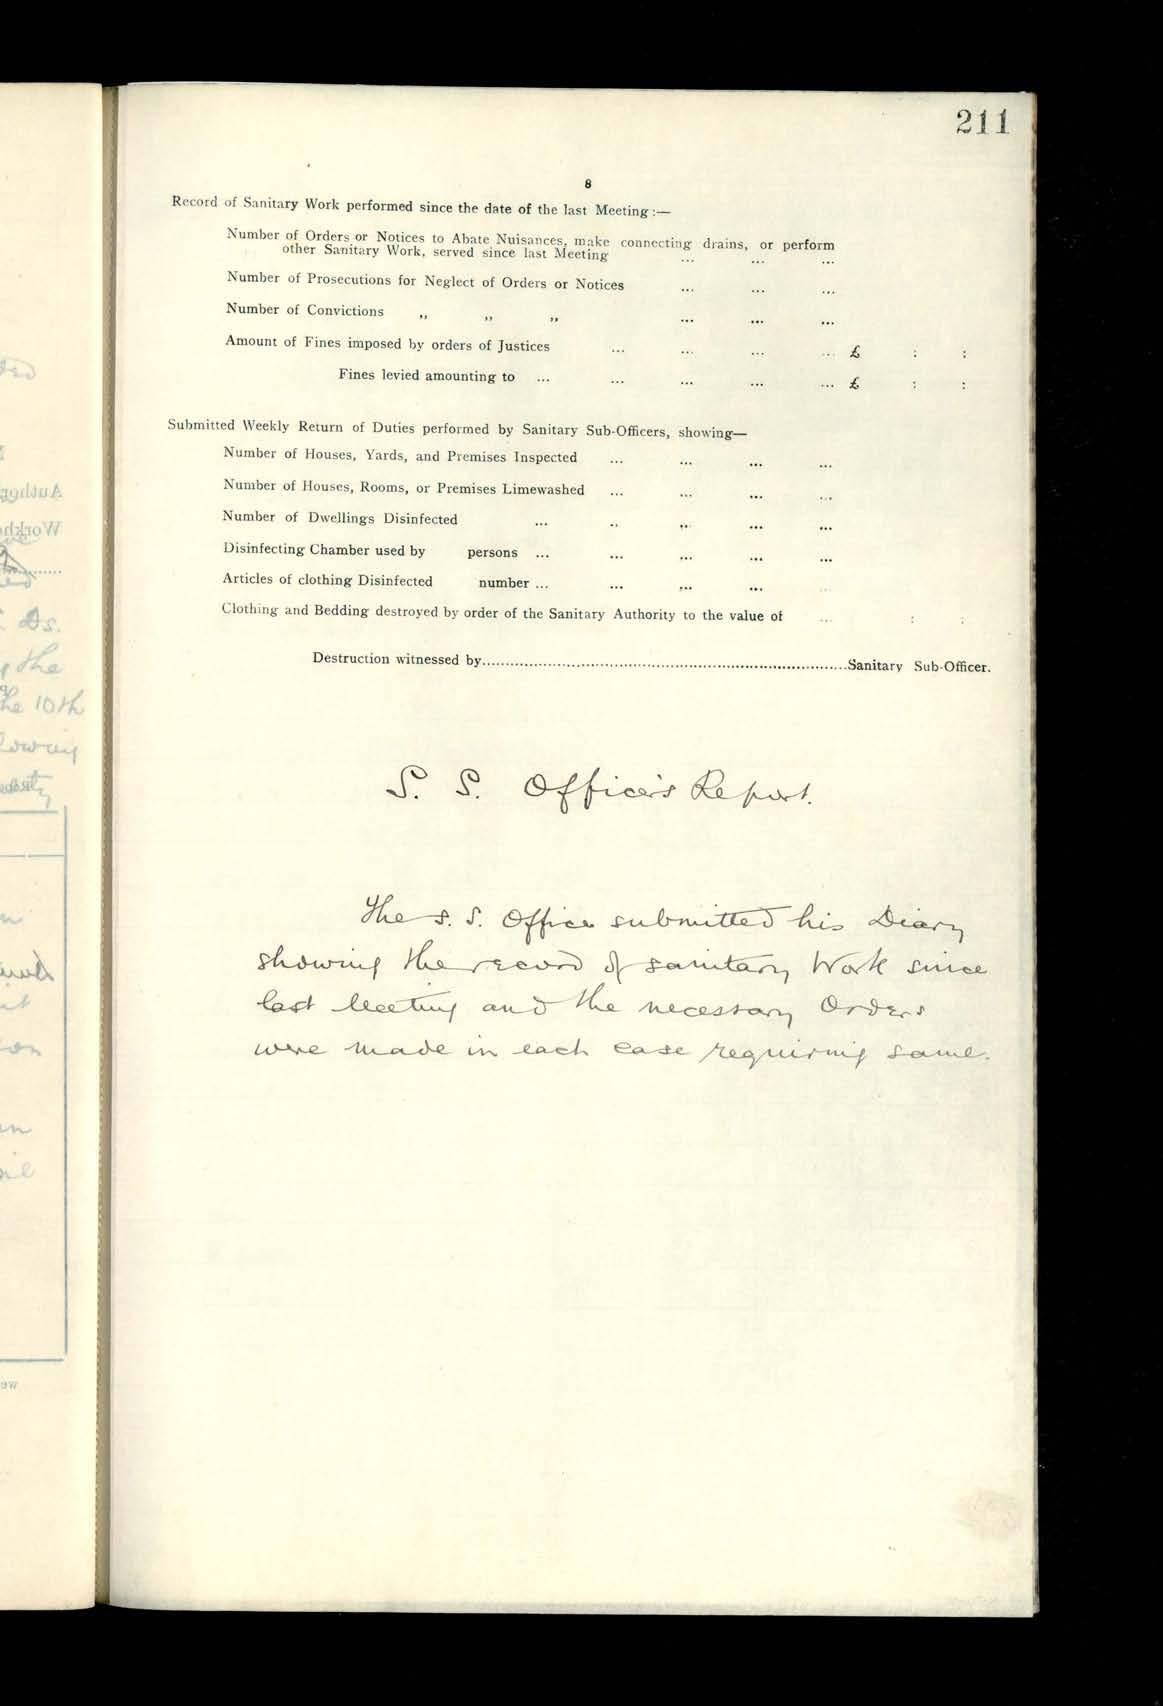 211
8
Record of Sanitary Work performed since the date of the last Meeting:—
Number of Orders or Notices to Abate Nuisances, make connecting drains, or perform
other Sanitary Work, served since last Meeting ... ... ...
Number of Prosecutions for Neglect of Orders or Notices ... ... ...
Number of Convictions ,, ,, ,, ... ... ...
Amount of Fines imposed by orders of Justices ... ... ... ... £ : :
Fines levied amounting to ... ... ... ... ... £ : :
Submitted Weekly Return of Duties performed by Sanitary Sub-Officers, showing—
Number of Houses, Yards, and Premises Inspected ... ... ... ...
Number of Houses, Rooms, or Premises Limewashed ... ... ... ...
Number of Dwellings Disinfected ... .. ... ... ...
Disinfecting Chamber used by persons ... ... ... ... ...
Articles of clothing Disinfected number ... ... ... ... ...
Clothing and Bedding destroyed by order of the Sanitary Authority to the value of ... : :
Destruction witnessed by..............................Sanitary Sub-Officer.
S. S. Officer's Report.
The S. S. Officer submitted his Diary
showing the record of sanitary Work since
last Meeting and the necessary Orders
were made in each case requiring same.
Ds.
the
the 10th